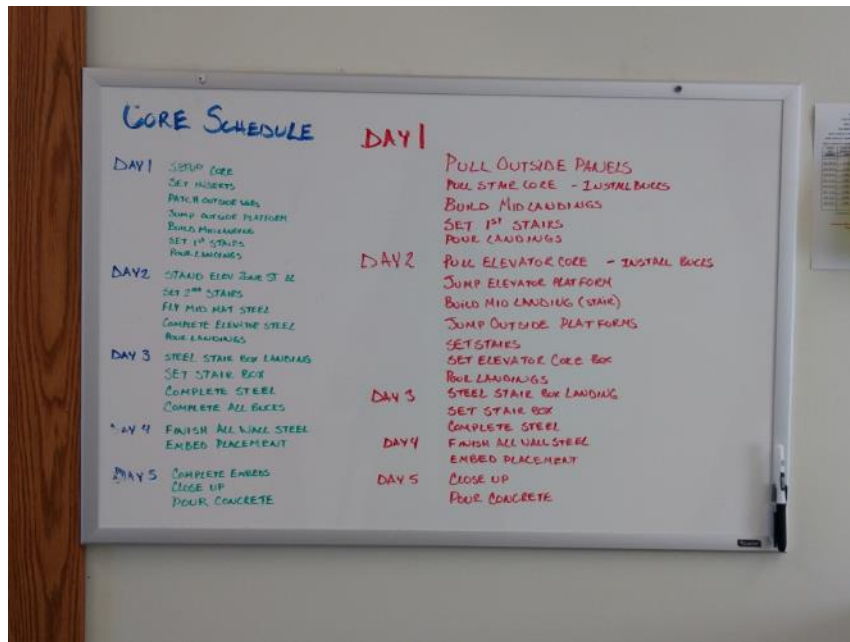 CORE SCHEDULE
DAY 1 SETUP CORE
SET INSERTS
PATCH OUTSIDE
JUMP OUTSIDE PLATFORM
BUILD MIDLANDING
SET 1ST STAIRS
POUR LANDINGS
DAY 2 STAND ELEV
SET 2ND STAIRS
FLY MID MAT STEEL
COMPLETE ELEVATOR STEEL
POUR LANDINGS
DAY 3 STEEL STAIR BOX LANDING
SET STAIR BOX
COMPLETE STEEL
COMPLETE ALL BUCKS
DAY 4 FINISH ALL WALL STEEL
EMBED PLACEMENT
DAY 5 COMPLETE EMBEDS
CLOSE UP
POUR CONCRETE
DAY 1
PULL OUTSIDE PANELS
PULL STAIR CORE - INSTALL BUCKS
BUILD MIDLANDINGS
SET 1ST STAIRS
POUR LANDINGS
DAY 2 PULL ELEVATOR CORE - INSTALL BUCKS
JUMP ELEVATOR PLATFORM
BUILD MID LANDING (STAIR)
JUMP OUTSIDE PLATFORMS
SET STAIRS
SET ELEVATOR CORE BOX
POUR LANDINGS
DAY 3 STEEL STAIR BOX LANDING
SET STAIR BOX
COMPLETE STEEL
DAY 4 FINISH ALL WALL STEEL
EMBED PLACEMENT
DAY 5 CLOSE UP
POUR CONCRETE